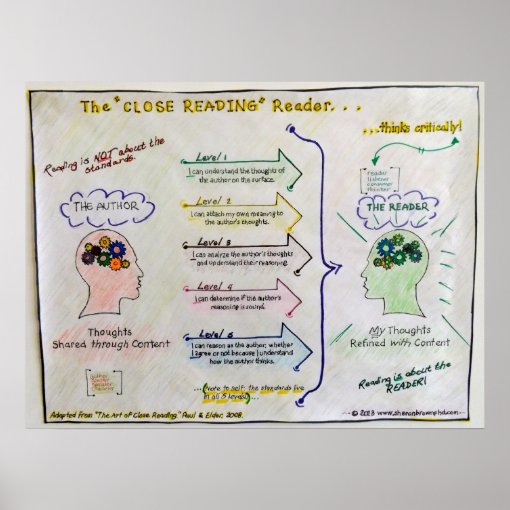 The "CLOSE READING" Reader...
...thinks critically!
Reading is NOT about the
standards.
THE AUTHOR
Thoughts
Shared through Content
Level 1
I can understand the thoughts of
the author on the surface.
Level 2
I can attach my own meaning to
the author's thoughts.
Level 3
I can analyze the author's thoughts
and understand their reasoning.
Level 4
I can determine if the author's
reasoning is sound.
Level 5
I can reason as the author, whether
I agree or not because I understand
how the author thinks.
(Note to self: the standards live
in all 5 levels!)...
reader
listener
consumer
thinker
THE READER
My Thoughts
Refined with Content
Reading is about the
READER!
Adapted from "The Art of Close Reading," Paul & Elder, 2008.
...© 2013 www.sheronbrownphd.com...